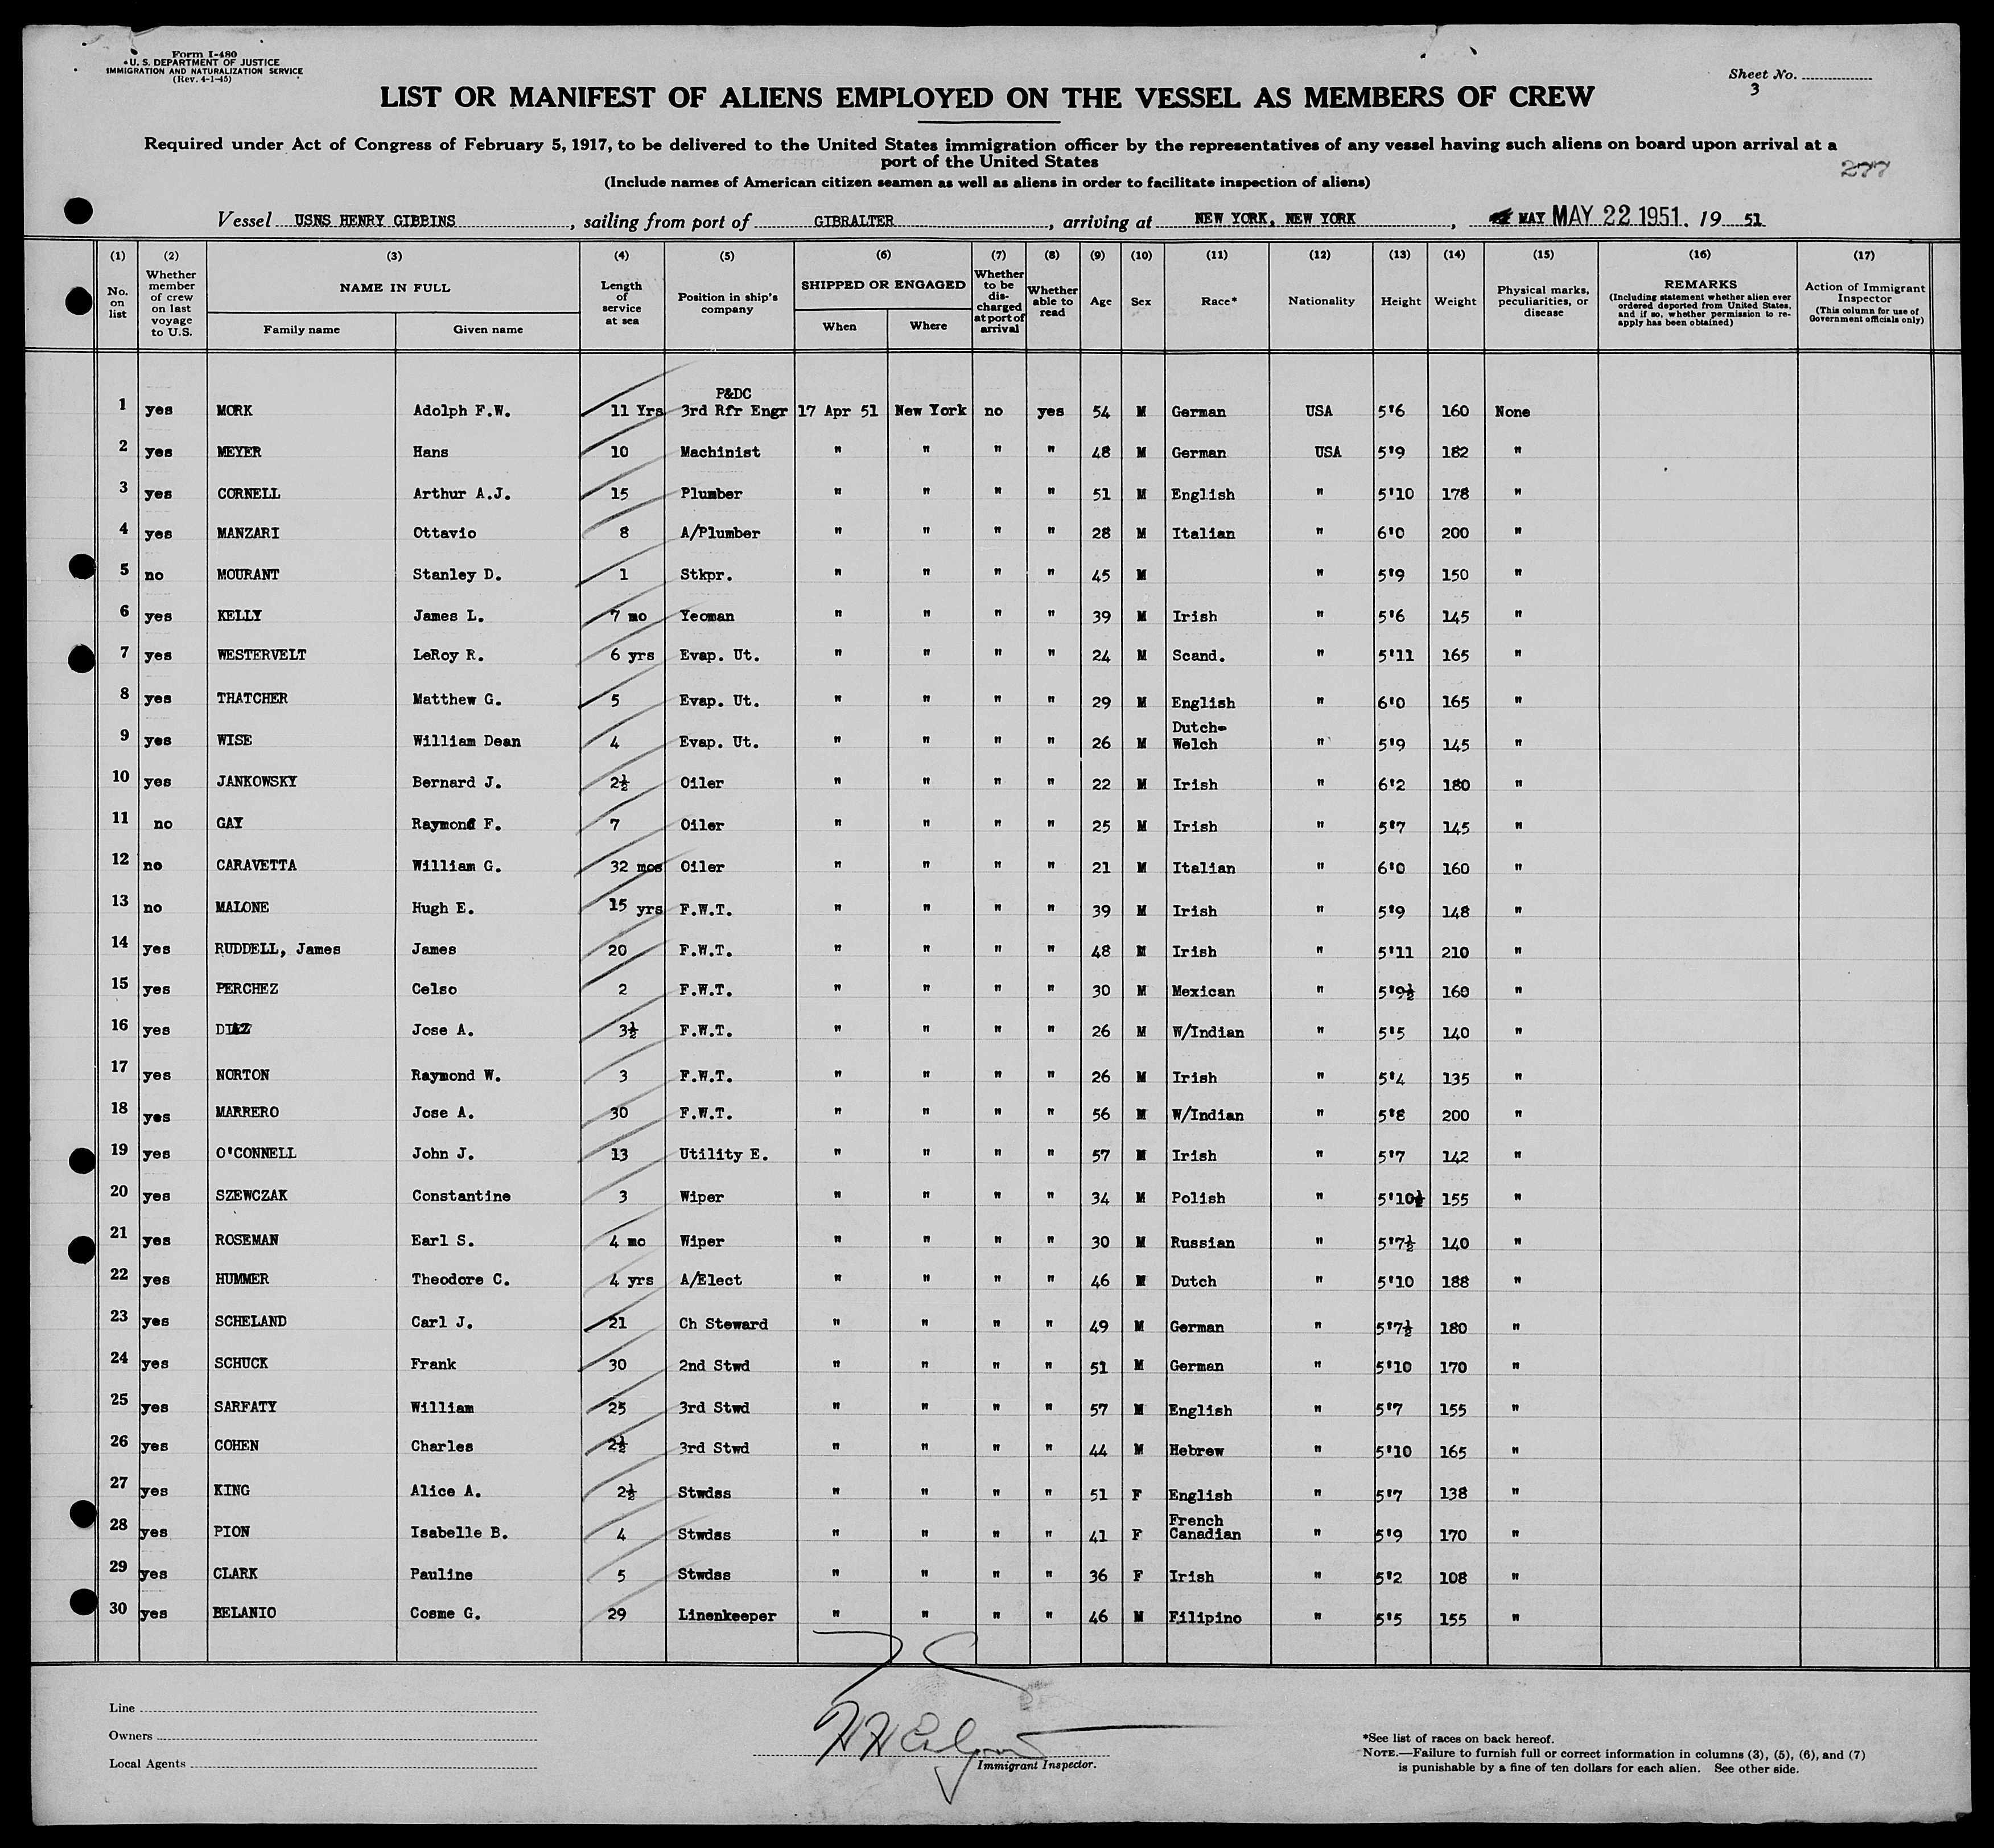 Form I-480
U. S. DEPARTMENT OF JUSTICE
IMMIGRATION AND NATURALIZATION SERVICE
(Rev. 4-1-45)
Sheet No.
3
LIST OR MANIFEST OF ALIENS EMPLOYED ON THE VESSEL AS MEMBERS OF CREW
Required under Act of Congress of February 5, 1917, to be delivered to the United States immigration officer by the representatives of any vessel having such aliens on board upon arrival at a
port of the United States
277
(Include names of American citizen seamen as well as aliens in order to facilitate inspection of aliens)
Vessel USNS HENRY GIBBINS, sailing from port of GIBRALTER, arriving at NEW YORK, NEW YORK, MAY MAY 22 1951. 19 51
(1) (2) (3) (4) (5) (6) (7) (8) (9) (10) (11) (12) (13) (14) (15) (16) (17)
No. on list
Whether member of crew on last voyage to U.S.
NAME IN FULL
Family name
Given name
Length of service at sea
Position in ship's company
SHIPPED OR ENGAGED
When
Where
Whether to be discharged at port of arrival
Whether able to read
Age
Sex
Race*
Nationality
Height
Weight
Physical marks, peculiarities, or disease
REMARKS
(Including statement whether alien ever ordered deported from United States, and if so, whether permission to re-apply has been obtained)
Action of Immigrant Inspector
(This column for use of Government officials only)
P&DC
1 yes MORK Adolph F.W. 11 Yrs 3rd Rfr Engr 17 Apr 51 New York no yes 54 M German USA 5'6 160 None
2 yes MEYER Hans 10 Machinist " " " " 48 M German USA 5'9 182 "
3 yes CORNELL Arthur A.J. 15 Plumber " " " " 51 M English " 5'10 178 "
4 yes MANZARI Ottavio 8 A/Plumber " " " " 28 M Italian " 6'0 200 "
5 no MOURANT Stanley D. 1 Stkpr. " " " " 45 M " 5'9 150 "
6 yes KELLY James L. 7 mo Yeoman " " " " 39 M Irish " 5'6 145 "
7 yes WESTERVELT LeRoy R. 6 yrs Evap. Ut. " " " " 24 M Scand. " 5'11 165 "
8 yes THATCHER Matthew G. 5 Evap. Ut. " " " " 29 M English " 6'0 165 "
9 yes WISE William Dean 4 Evap. Ut. " " " " 26 M Dutch-Welch " 5'9 145 "
10 yes JANKOWSKY Bernard J. 2½ Oiler " " " " 22 M Irish " 6'2 180 "
11 no GAY Raymond F. 7 Oiler " " " " 25 M Irish " 5'7 145 "
12 no CARAVETTA William G. 32 mos Oiler " " " " 21 M Italian " 6'0 160 "
13 no MALONE Hugh E. 15 yrs F.W.T. " " " " 39 M Irish " 5'9 148 "
14 yes RUDDELL, James James 20 F.W.T. " " " " 48 M Irish " 5'11 210 "
15 yes PERCHEZ Celso 2 F.W.T. " " " " 30 M Mexican " 5'9½ 160 "
16 yes DIAZ Jose A. 3½ F.W.T. " " " " 26 M W/Indian " 5'5 140 "
17 yes NORTON Raymond W. 3 F.W.T. " " " " 26 M Irish " 5'4 135 "
18 yes MARRERO Jose A. 30 F.W.T. " " " " 56 M W/Indian " 5'8 200 "
19 yes O'CONNELL John J. 13 Utility E. " " " " 57 M Irish " 5'7 142 "
20 yes SZEWCZAK Constantine 3 Wiper " " " " 34 M Polish " 5'10½ 155 "
21 yes ROSEMAN Earl S. 4 mo Wiper " " " " 30 M Russian " 5'7½ 140 "
22 yes HUMMER Theodore C. 4 yrs A/Elect " " " " 46 M Dutch " 5'10 188 "
23 yes SCHELAND Carl J. 21 Ch Steward " " " " 49 M German " 5'7½ 180 "
24 yes SCHUCK Frank 30 2nd Stwd " " " " 51 M German " 5'10 170 "
25 yes SARFATY William 25 3rd Stwd " " " " 57 M English " 5'7 155 "
26 yes COHEN Charles 2½ 3rd Stwd " " " " 44 M Hebrew " 5'10 165 "
27 yes KING Alice A. 2½ Stwdss " " " " 51 F English " 5'7 138 "
28 yes PION Isabelle B. 4 Stwdss " " " " 41 F French Canadian " 5'9 170 "
29 yes CLARK Pauline 5 Stwdss " " " " 36 F Irish " 5'2 108 "
30 yes BELANIO Cosme G. 29 Linenkeeper " " " " 46 M Filipino " 5'5 155 "
Line
Owners
Local Agents
Immigrant Inspector.
*See list of races on back hereof.
NOTE.—Failure to furnish full or correct information in columns (3), (5), (6), and (7)
is punishable by a fine of ten dollars for each alien. See other side.